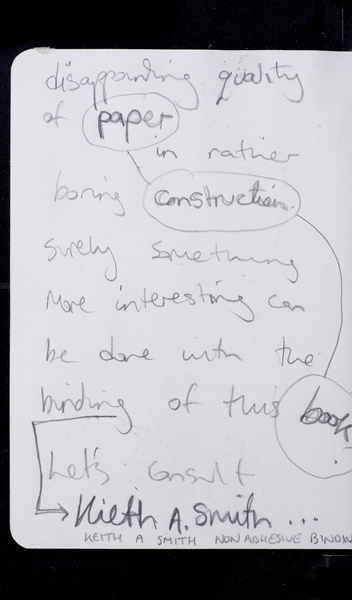 disappointing quality
of paper
in rather
boring construction.
surely something
more interesting can
be done with the
binding of this book.
Let's consult
Kieth A. Smith ...
KEITH A SMITH NON ADHESIVE BINDIN